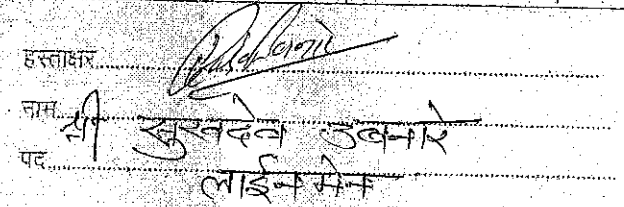 हस्ताक्षर
नाम श्री सुखदेव उबनारे
पद
लाईनमेन